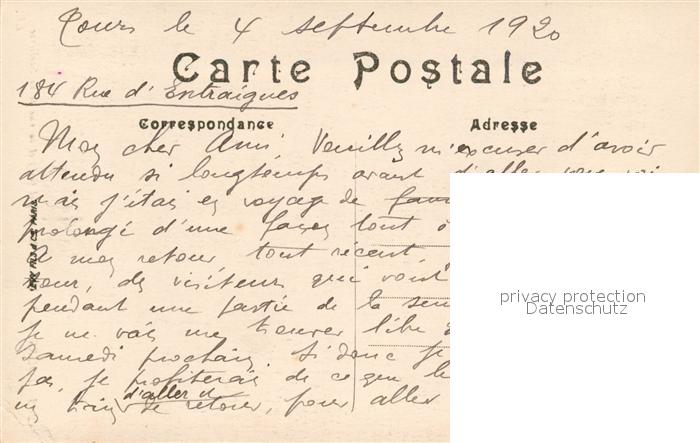 Tours le 4 septembre 1920
Carte Postale
184 Rue d'Entraigues
Correspondance
Adresse
Mon cher Ami, Veuillez m'excuser d'avoir
attendu si longtemps avant d'aller vous voir
mais j'étais en voyage de
prolongé d'une façon tout à
mon retour tout récent,
des visiteurs qui vont
pendant une partie de la sem
Je ne vais me trouver libre
Samedi prochain. Si donc je
pas, je profiterai de ce que le
d'aller
un train de retour, pour aller
privacy protection
Datenschutz